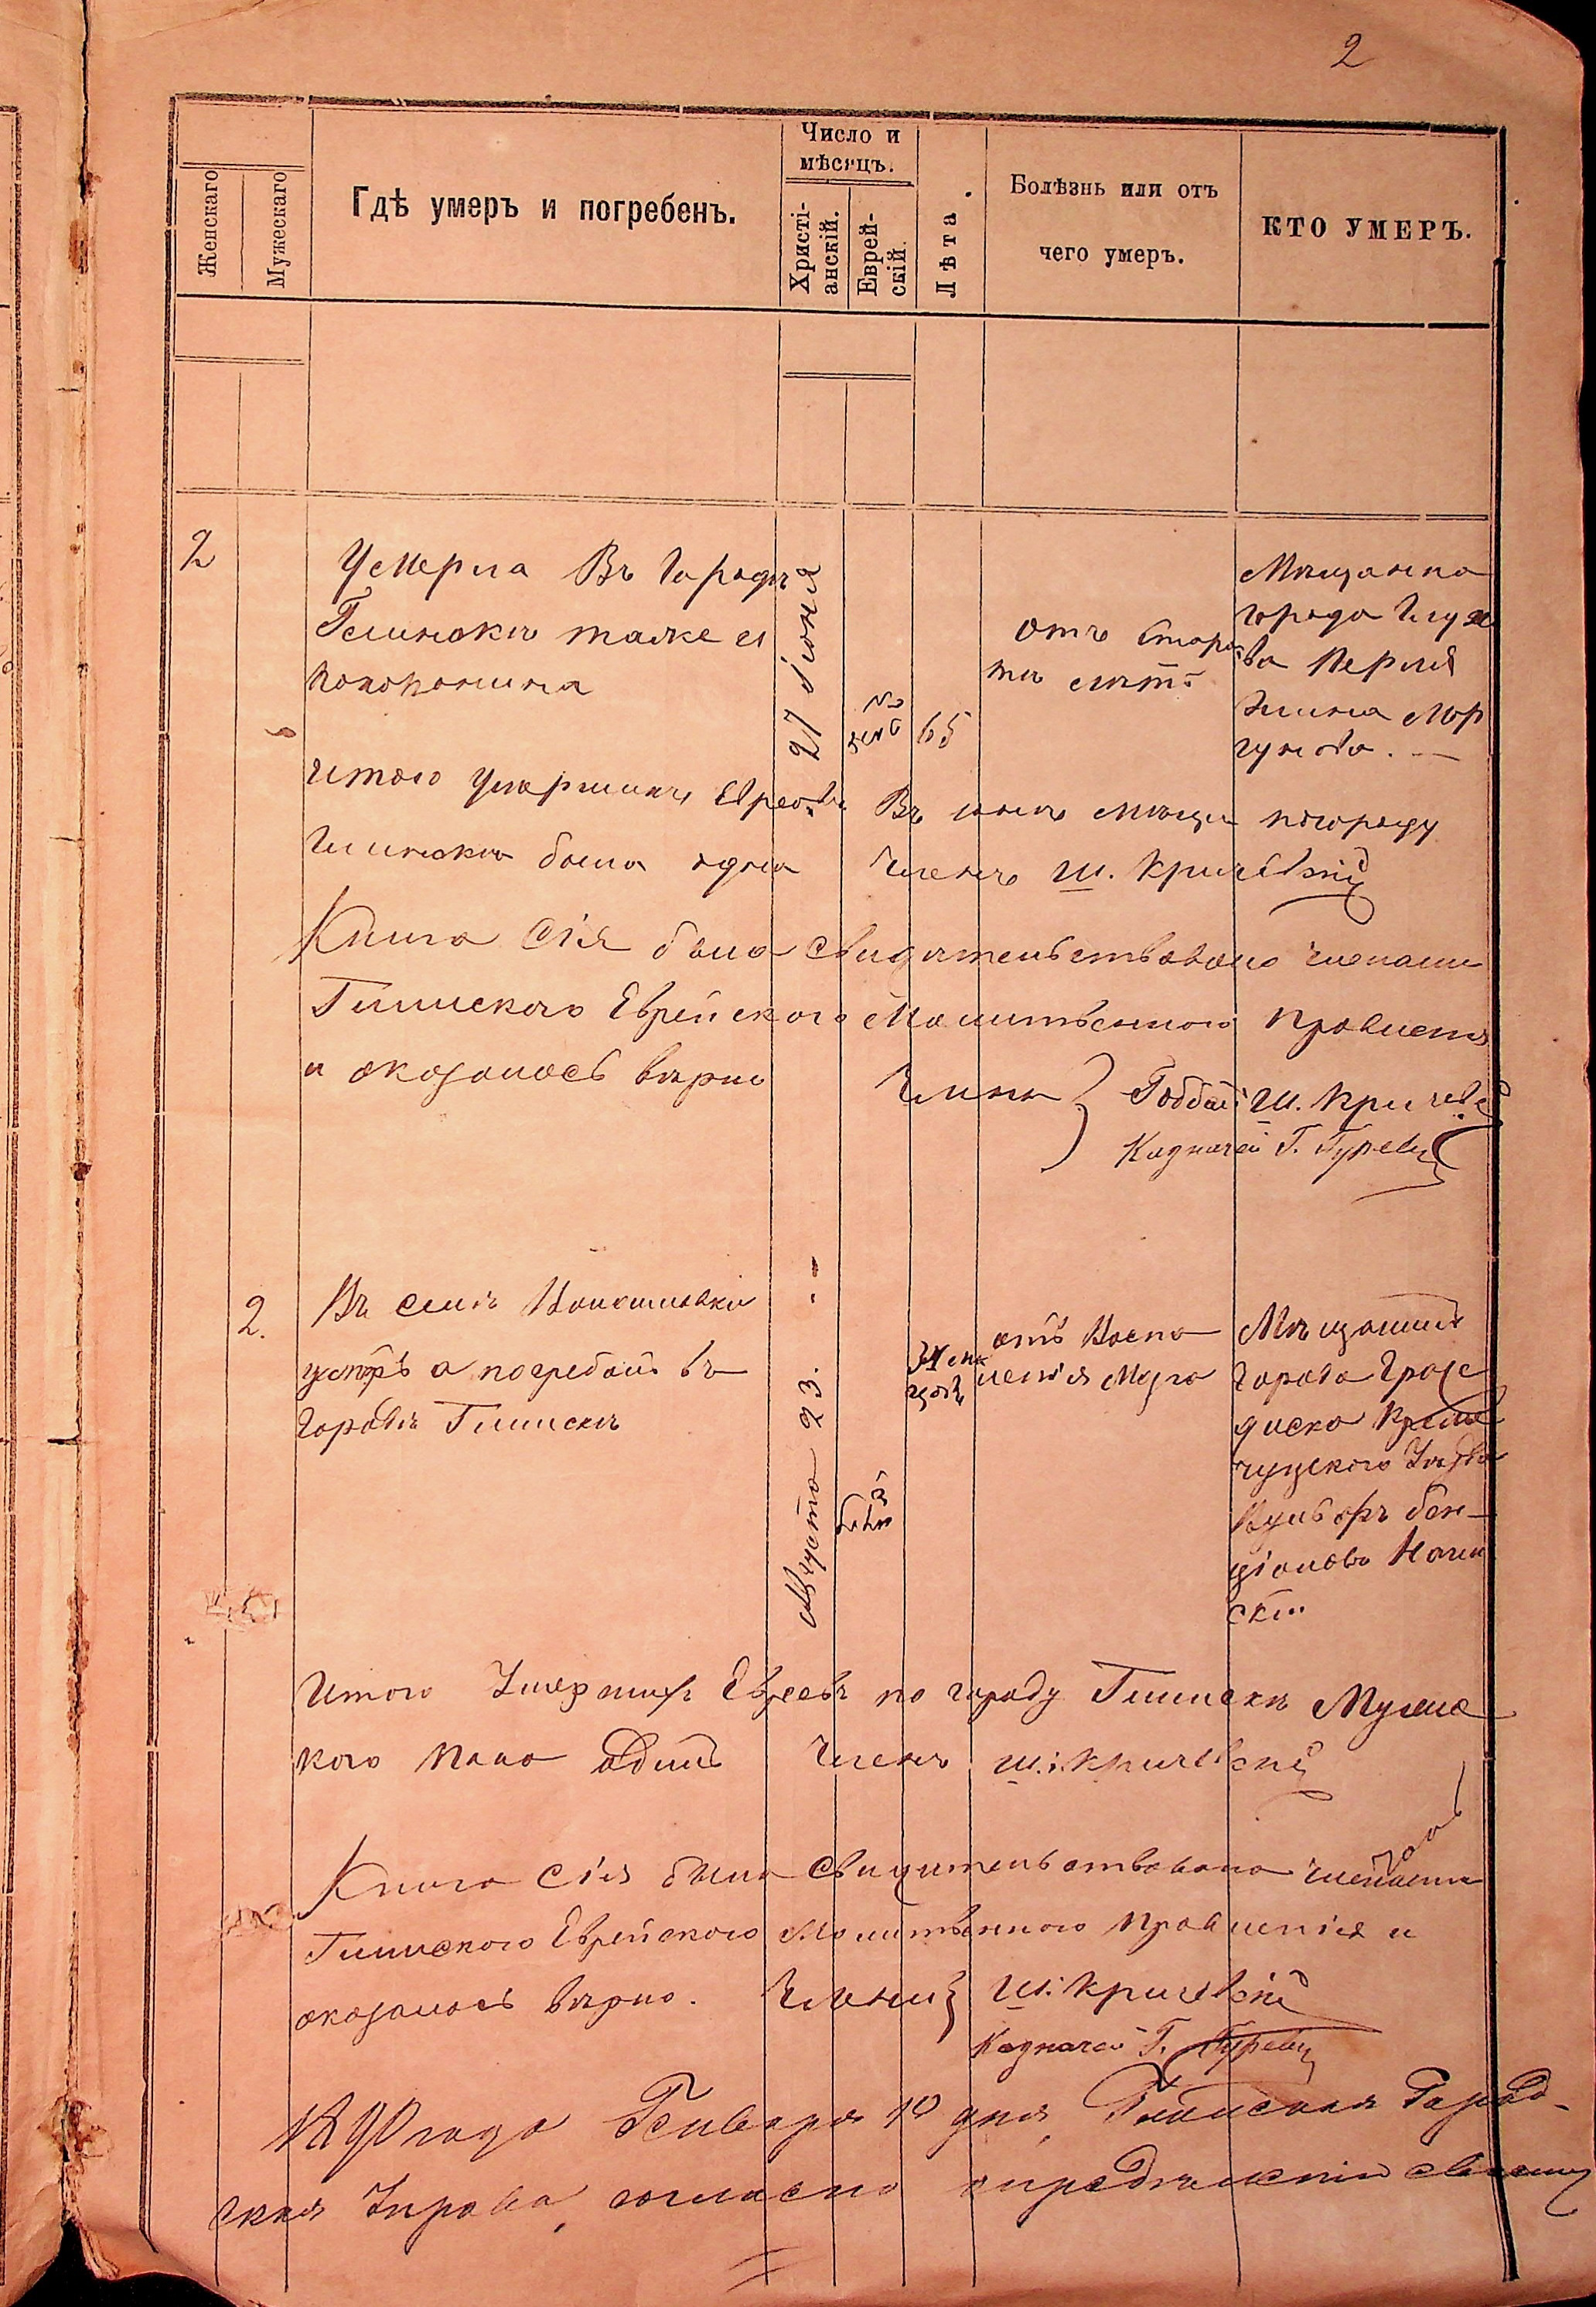 2
Женскаго
Мужескаго
Гдѣ умеръ и погребенъ.
Число и
мѣсяцъ.
Христі-
анскій.
Еврей-
скій.
Лѣта.
Болѣзнь или отъ
чего умеръ.
КТО УМЕРЪ.
2
Умерла Въ Городѣ
также и
27 Іюня
65
отъ Старос
ти лѣтъ
Мѣщанка
города Глухо
ва
Итого умершихъ Евреовъ Въ мѣсцѣ погороду
была одна Членъ Ш. Кричевскій
Книга Сія была Свидѣтельствована членами
Глинскаго Еврейского Молитвеного Правленія
и оказалось вѣрно Члены Ш. Кричевскій
Казначей Г. Гуревич
2.
Въ селѣ
умеръ а погребонъ въ
городѣ Глинскѣ
Августа 23.
отъ Воспа
ленія Мозга
Мѣщанинъ
Города Гради
диска Кремен
чугского Уѣзда
Бен
ціоновъ
скій
Итого Умершихъ Евреевъ по городу Глинскѣ Мужес
кого пола одинъ Членъ Ш. Кричевскій
Книга Сія была Свидительствована членами
Глинского Еврейского Молитвенного Правленія и
оказалось вѣрно. Члени Ш. Кричевскій
Казначей Г. Гуревич
1890 года Генваря 10 дня, Глинская Город-
ская Управа, согласно опредѣленію своему